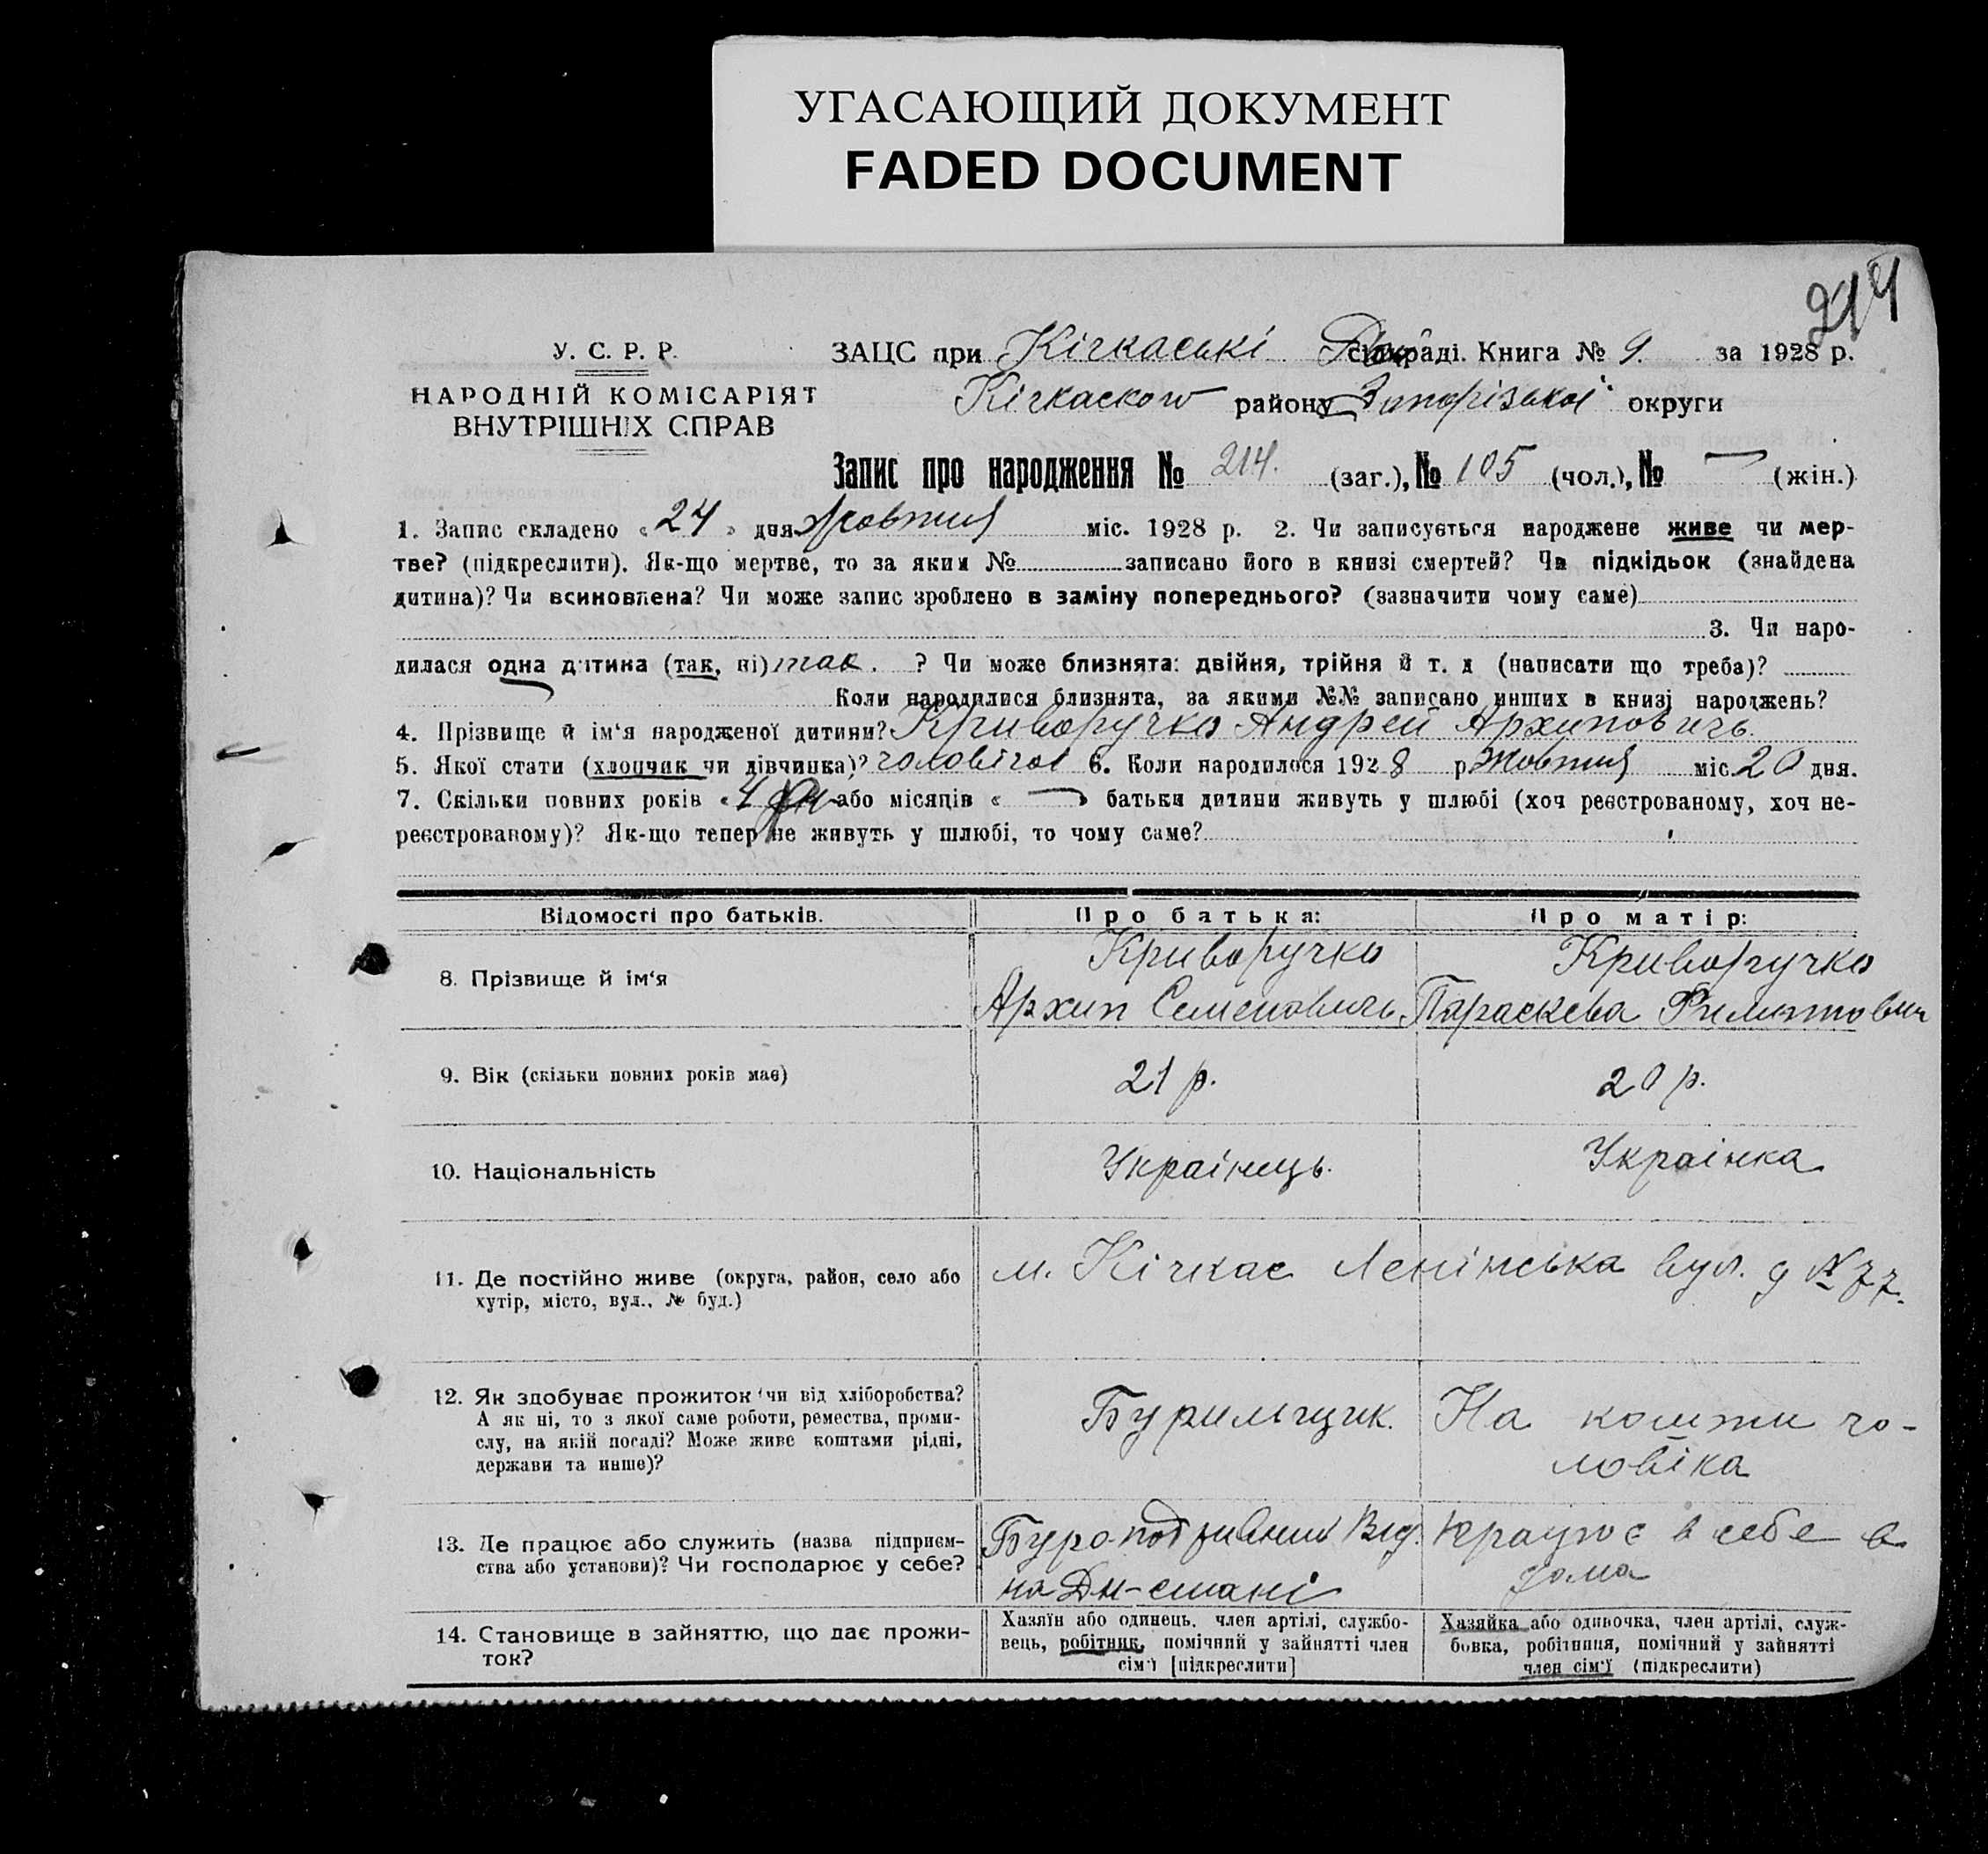 УГАСАЮЩИЙ ДОКУМЕНТ
FADED DOCUMENT
214
У. С. Р. Р.
НАРОДНІЙ КОМІСАРІЯТ
ВНУТРІШНІХ СПРАВ
ЗАЦС при Кічкаські сільраді. Книга № 9. за 1928 р.
Кічкаского району Запорізької округи
Запис про народження № 214. (заг.), № 105 (чол.), № — (жін.)
1. Запис складено « 24 » дня Жовтня міс. 1928 р. 2. Чи записується народжене живе чи мер-
тве? (підкреслити). Як-що мертве, то за яким № записано його в книзі смертей? Чи підкідьок (знайдена
дитина)? Чи всиновлена? Чи може запис зроблено в заміну попереднього? (зазначити чому саме)
3. Чи наро-
дилася одна дитина (так, ні) так. ? Чи може близнята: двійня, трійня й т. д (написати що треба)?
Коли народилися близнята, за якими №№ записано инших в книзі народжень?
4. Прізвище й ім'я народженої дитини? Криворучко Андрей Архиповичь.
5. Якої статі (хлопчик чи дівчинка)? чоловічої 6. Коли народилося 1928 р Жовтня міс. 20 дня.
7. Скільки повних років « 4 або місяців « — » батьки дитини живуть у шлюбі (хоч реєстрованому, хоч не-
реєстрованому)? Як-що тепер не живуть у шлюбі, то чому саме?
Відомості про батьків. Про батька: Про матір:
8. Прізвище й ім'я Криворучко Архип Семеновичь. Криворучко Параскева
9. Вік (скільки повних років має) 21 р. 20 р.
10. Національність Українець. Українка
11. Де постійно живе (округа, район, село або
хутір, місто, вул., № буд.) м. Кічкас Ленінська вул. д № 77.
12. Як здобуває прожиток (чи від хліборобства?
А як ні, то з якої саме роботи, ремества, проми-
слу, на якій посаді? Може живе коштами рідні,
держави та инше)? Бурильщик. На кошти чо-
ловіка
13. Де працює або служить (назва підприєм-
ства або установи)? Чи господарює у себе? Буро-подривний Від.
на Дн-стані
в себе в
дома
14. Становище в зайняттю, що дає прожи-
ток?
Хазяїн або одинець, член артілі, службо-
вець, робітник, помічний у зайнятті член
сім'ї [підкреслити]
Хазяйка або одиночка, член артілі, служ-
бовка, робітниця, помічний у зайнятті
член сім'ї (підкреслити)